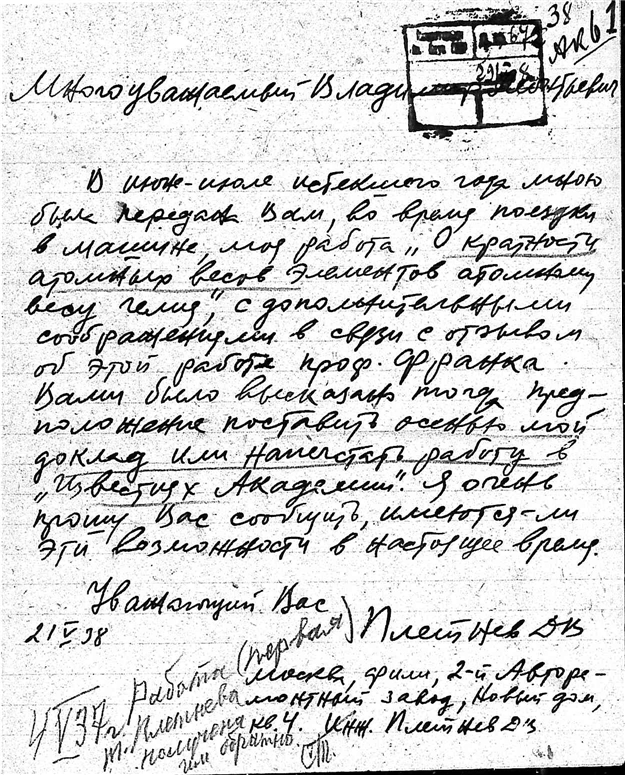 38
АКБ 1
Многоуважаемый Владимир Леонтьевич
В июне-июле истекшего года мною
была передана Вам, во время поездки
в машине, моя работа „О кратности
атомных весов элементов атомному
весу гелия", с дополнительными
соображениями в связи с отзывом
об этой работе проф. Франка.
Вами было высказано тогда пред-
положение поставить осенью мой
доклад или напечатать работу в
„Известиях Академии". Я очень
прошу Вас сообщить, имеются-ли
эти возможности в настоящее время.
Уважающий Вас
21 V 38
Плетнев ДВ
Москва, Фили, 2-й Авторе-
монтный завод, Новый дом,
кв 4. Инж. Плетнев ДВ
4 V 37 г.
Работа (первая)
т. Плетнева
получена
им обратно